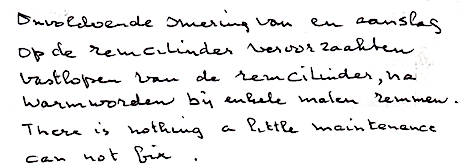 Onvoldoende smering van en aanslag
op de remcilinder veroorzaakten
vastlopen van de remcilinder, na
warmworden bij enkele malen remmen.
There is nothing a little maintenance
can not fix.